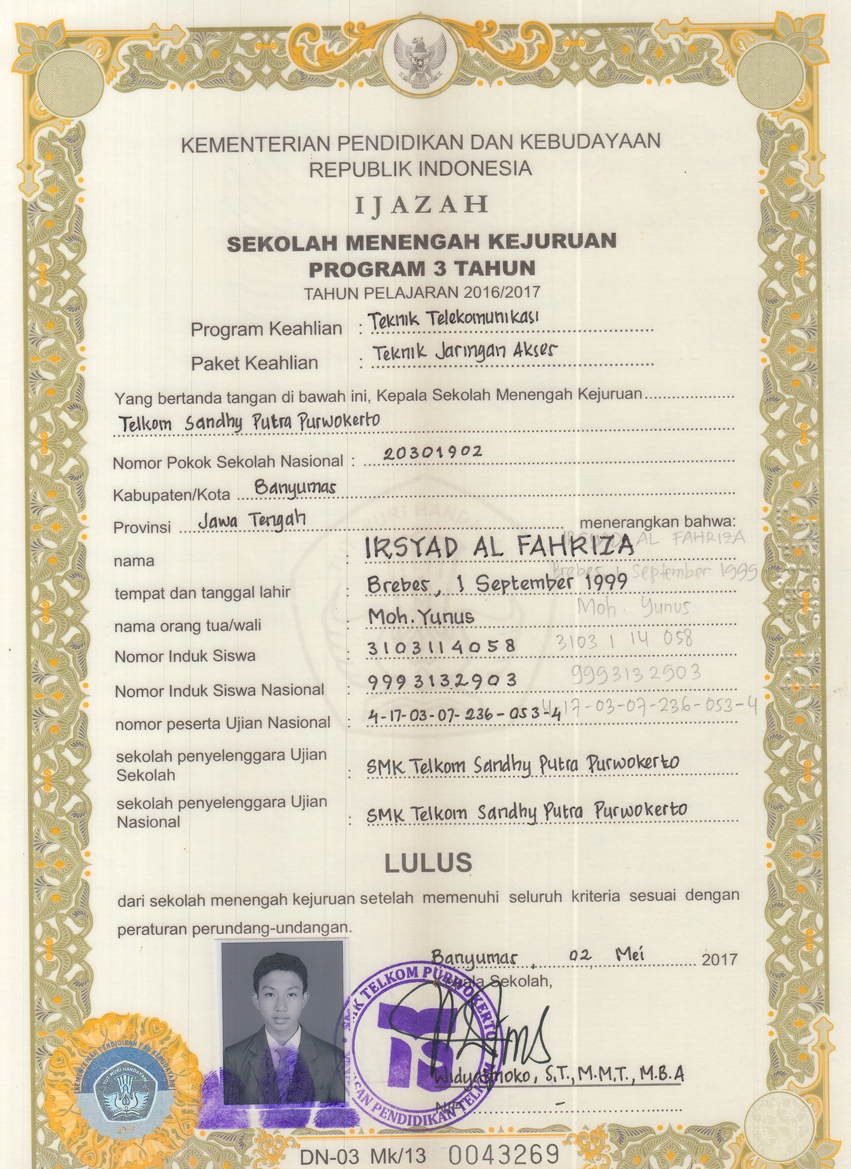 KEMENTERIAN PENDIDIKAN DAN KEBUDAYAAN
REPUBLIK INDONESIA
IJAZAH
SEKOLAH MENENGAH KEJURUAN
PROGRAM 3 TAHUN
TAHUN PELAJARAN 2016/2017
Program Keahlian : Teknik Telekomunikasi
Paket Keahlian : Teknik Jaringan Akses
Yang bertanda tangan di bawah ini, Kepala Sekolah Menengah Kejuruan
Telkom Sandhy Putra Purwokerto
Nomor Pokok Sekolah Nasional : 20301902
Kabupaten/Kota Banyumas
Provinsi Jawa Tengah menerangkan bahwa:
nama : IRSYAD AL FAHRIZA IRSYAD AL FAHRIZA
tempat dan tanggal lahir : Brebes, 1 September 1999 Brebes, 1 September 1999
nama orang tua/wali : Moh. Yunus Moh. Yunus
Nomor Induk Siswa : 3103114058 3103 1 14 058
Nomor Induk Siswa Nasional : 9993132903 9993132903
nomor peserta Ujian Nasional : 4-17-03-07-236-053-4 4-17-03-07-236-053-4
sekolah penyelenggara Ujian
Sekolah : SMK Telkom Sandhy Putra Purwokerto
sekolah penyelenggara Ujian
Nasional : SMK Telkom Sandhy Putra Purwokerto
LULUS
dari sekolah menengah kejuruan setelah memenuhi seluruh kriteria sesuai dengan
peraturan perundang-undangan.
Banyumas, 02 Mei 2017
Kepala Sekolah,
SMK TELKOM PURWOKERTO
Widyatmoko, S.T., M.M.T., M.B.A
NIP -
PENDIDIKAN TELKOM
KEMENTERIAN PENDIDIKAN DAN KEBUDAYAAN
TUT WURI HANDAYANI
DN-03 Mk/13 0043269